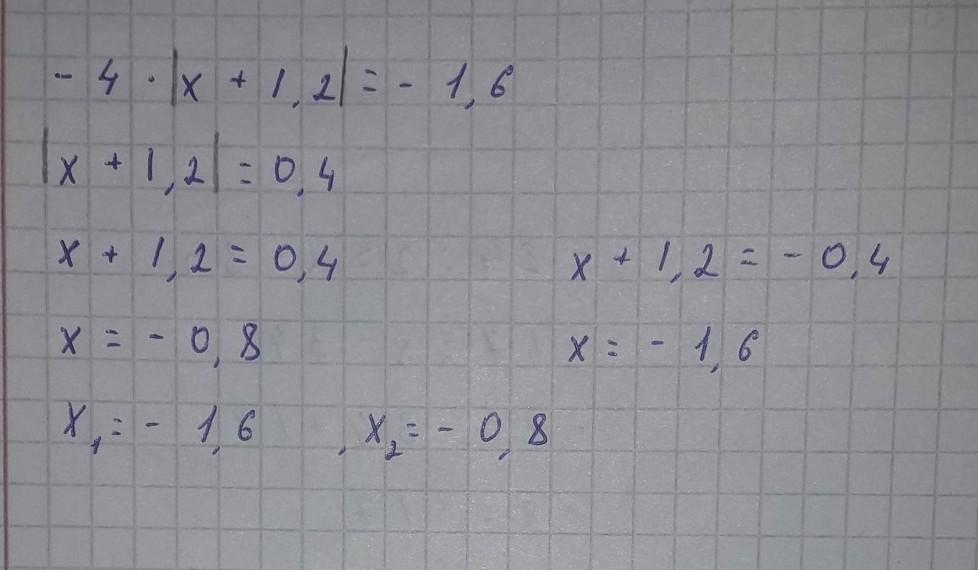 - 4 · |x + 1,2| = - 1,6
|x + 1,2| = 0,4
x + 1,2 = 0,4 x + 1,2 = - 0,4
x = - 0,8 x = - 1,6
x₁ = - 1,6 , x₂ = - 0,8